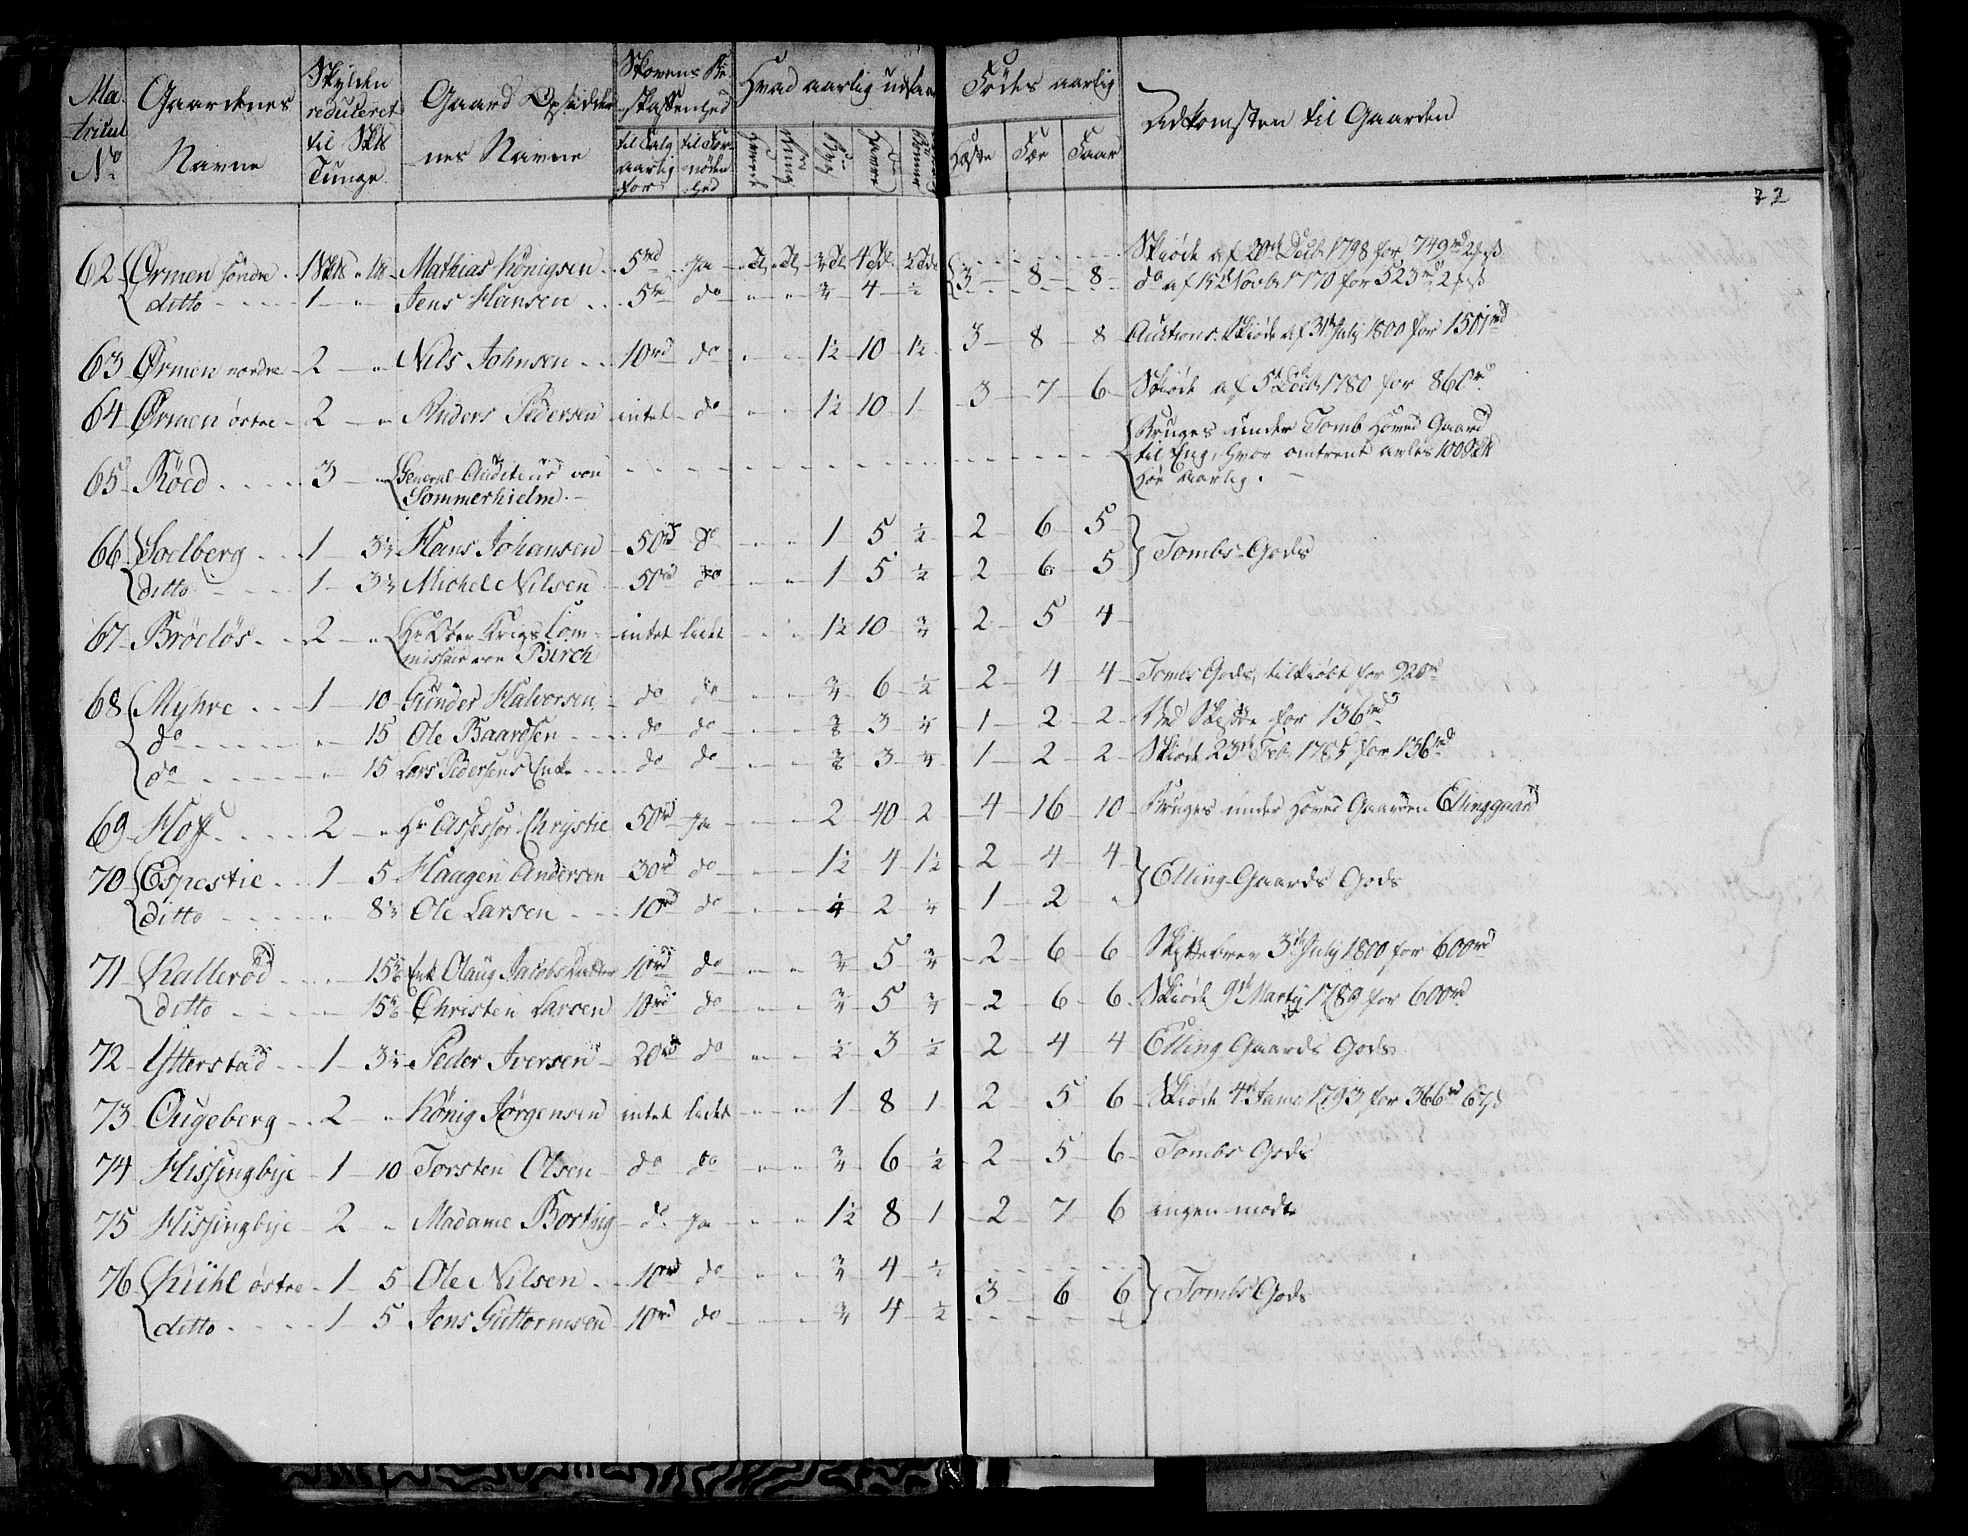 Ma- Gaardenes Skylden Gaard Opsidder- Skovens Be- Hvad aarlig udsaaes Födes aarlig Adkomsten til Gaarden
tricul reduceret skaffenhed
No Navne til Sk℔ nes Navne til Salg til For- Hvede Rug Byg Havre Heste Fæe Faar
Tunge aarlig nöden
for hed
22
62 Örmen söndre 1 Sk℔ 18 Mathias Königsen 5rd ja 4 3 8 8 Skiöde af 20de Decbr 1798 for 749rd
ditto 1 " Jens Hansen 5rd do " " 3/4 4 1/2 do af 15de Novbr 1770 for 523rd
63 Örmen nordre 2 " Nils Johnsen 10rd do " " 1½ 10 1½ 3 8 8 Auctions Skiöde af 31te July 1800 for 1501rd
64 Örmen östre 2 " Anders Pedersen intet do " " 1½ 10 1 3 7 6 Skiöde af 5te Decbr 1780 for 860rd
65 Röed 3 " General-Auditeur von Sommerhielm Bruges under Tomb Hoved Gaard
til Eng, hvor omtrent avles 100
Höe aarlig.
66 Soelberg 1 3½ Hans Johansen 50rd do " " 1 5 ½ 2 6 5 Tombs-Gods
ditto 1 3½ Michel Nilsen 50rd do " " 1 5 ½ 2 6 5
67 Bröelös 2 " Hr Ober Krigs Com-
missair von Birch intet lidet " " 1½ 10 3/4 2 5 4
68 Myhre 1 10 Gunder Halvorsen do do " " 3/4 6 ½ 2 4 4 Tombs Gods, tilkiöbt for 920rd
do " 15 Ole Baardsen do do " " 3/8 3 ¼ 1 2 2 Ved Skifte for 136rd
do " 15 Lars Pedersens Enke do do " " 3/8 3 ¼ 1 2 2 Skiöde 23de Feb 1785 for 136rd
69 Hof 2 " Hr Assessor Chrystie 50rd ja " " 2 40 2 4 16 10 Bruges under Hoved Gaarden Ellinggaard
70 Espestie 1 5 Haagen Andersen 30rd do " " 1½ 4 1½ 2 4 4 Elling-Gaards Gods
ditto " 8½ Ole Larsen 10rd do " " ¼ 2 ¼ 1 2 "
71 Kalleröd " 15½ Enke Olaug Jacobsdatter 10rd do " " 3/4 5 3/4 2 6 6 Skiftebrev 3de July 1800 for 600rd
ditto " 15½ Christen Larsen 10rd do " " 3/4 5 3/4 2 6 6 Skiöde 9de Martij 1789 for 600rd
72 Ytterstad 1 3½ Peder Iversen 20rd do " " ½ 3 ½ 2 4 4 Elling Gaards Gods
73 Ougeberg 2 " König Jörgensen intet lidet " " 1 8 1 2 5 6 Skiöde 4de Janr 1793 for 366rd
74 Hissingbye 1 10 Torsten Olsen do do " " 3/4 6 ½ 2 5 6 Tombs Gods
75 Hissingbye 2 " Madame Borthig do ja " " 1½ 8 1 2 7 6 ingen mödte
76 Kühl östre 1 5 Ole Nilsen 10rd do " " 3/4 4 ½ 3 6 6 Tombs Gods
ditto 1 5 Jens Guttormsen 10rd do " " 3/4 4 ½